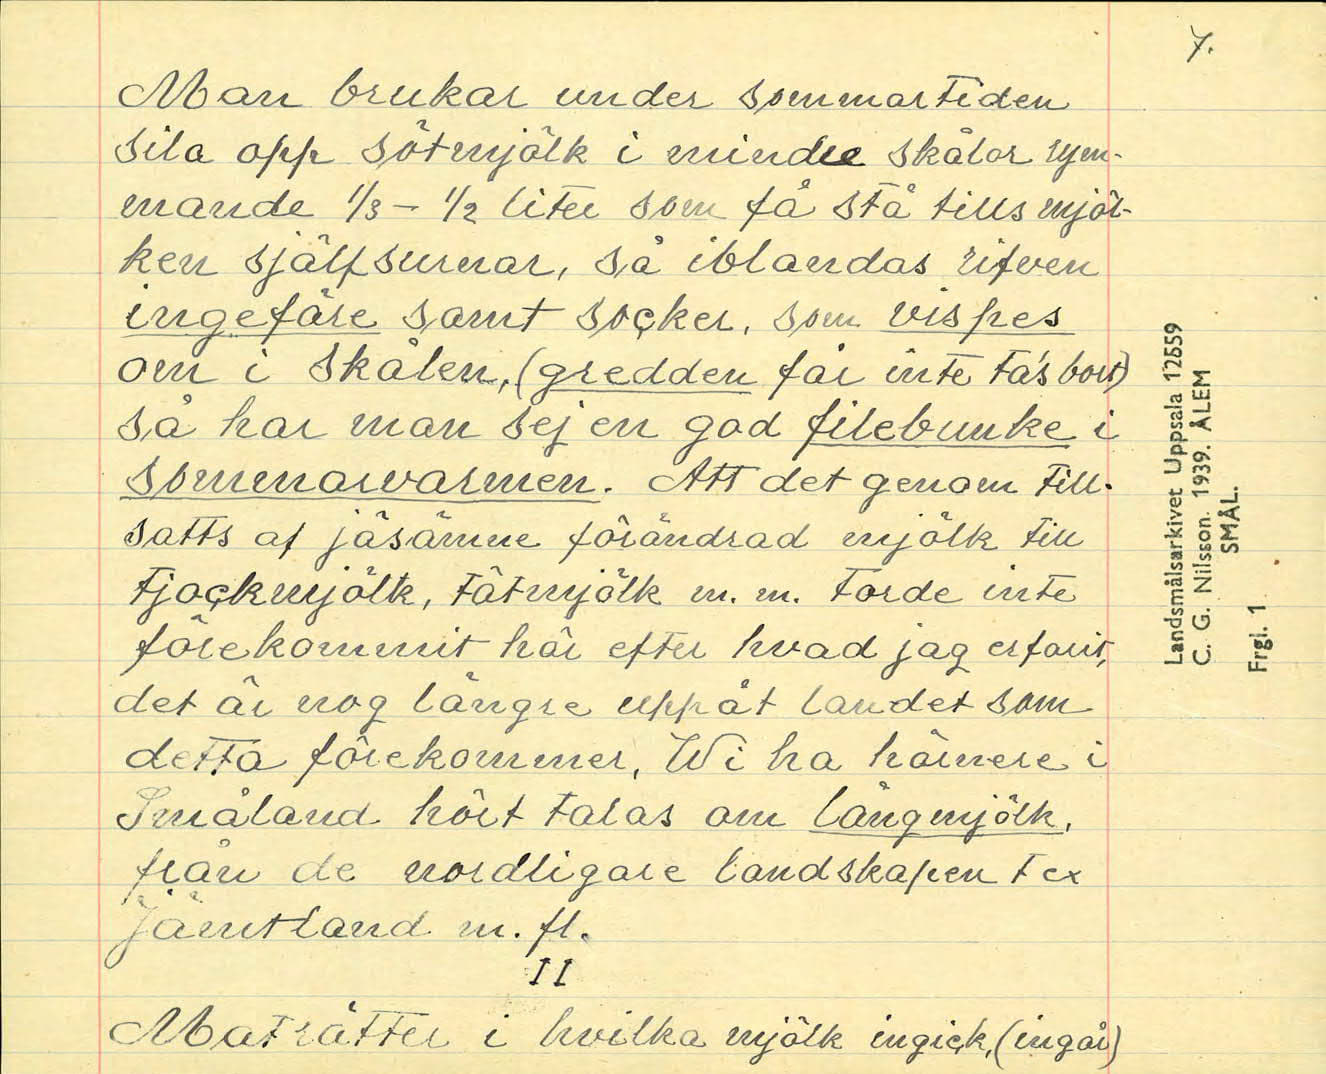 7.
Man brukar under sommartiden
sila opp sötmjölk i mindre skålar rym-
mande 1/3 - 1/2 liter som få stå tills mjöl-
ken själfsurnar, så iblandas rifven
ingefäre samt socker, som vispes
om i skålen, (gredden får inte ta's bort)
så har man sej en god filebunke i
sommarvarmen. Att det genom till-
satts af jäsämne förändrad mjölk till
tjockmjölk, tätmjölk m. m. torde inte
förekommit här efter hvad jag erfarit,
det är nog längre uppåt landet som
detta förekommer, Wi ha härnere i
Småland hört talas om långmjölk,
från de nordligare landskapen t ex
Jämtland m. fl.
II
Maträtter i hvilka mjölk ingick, (ingår)
Landsmålsarkivet Uppsala 12659
C. G. Nilsson. 1939. ÅLEM
SMÅL.
Frgl. 1